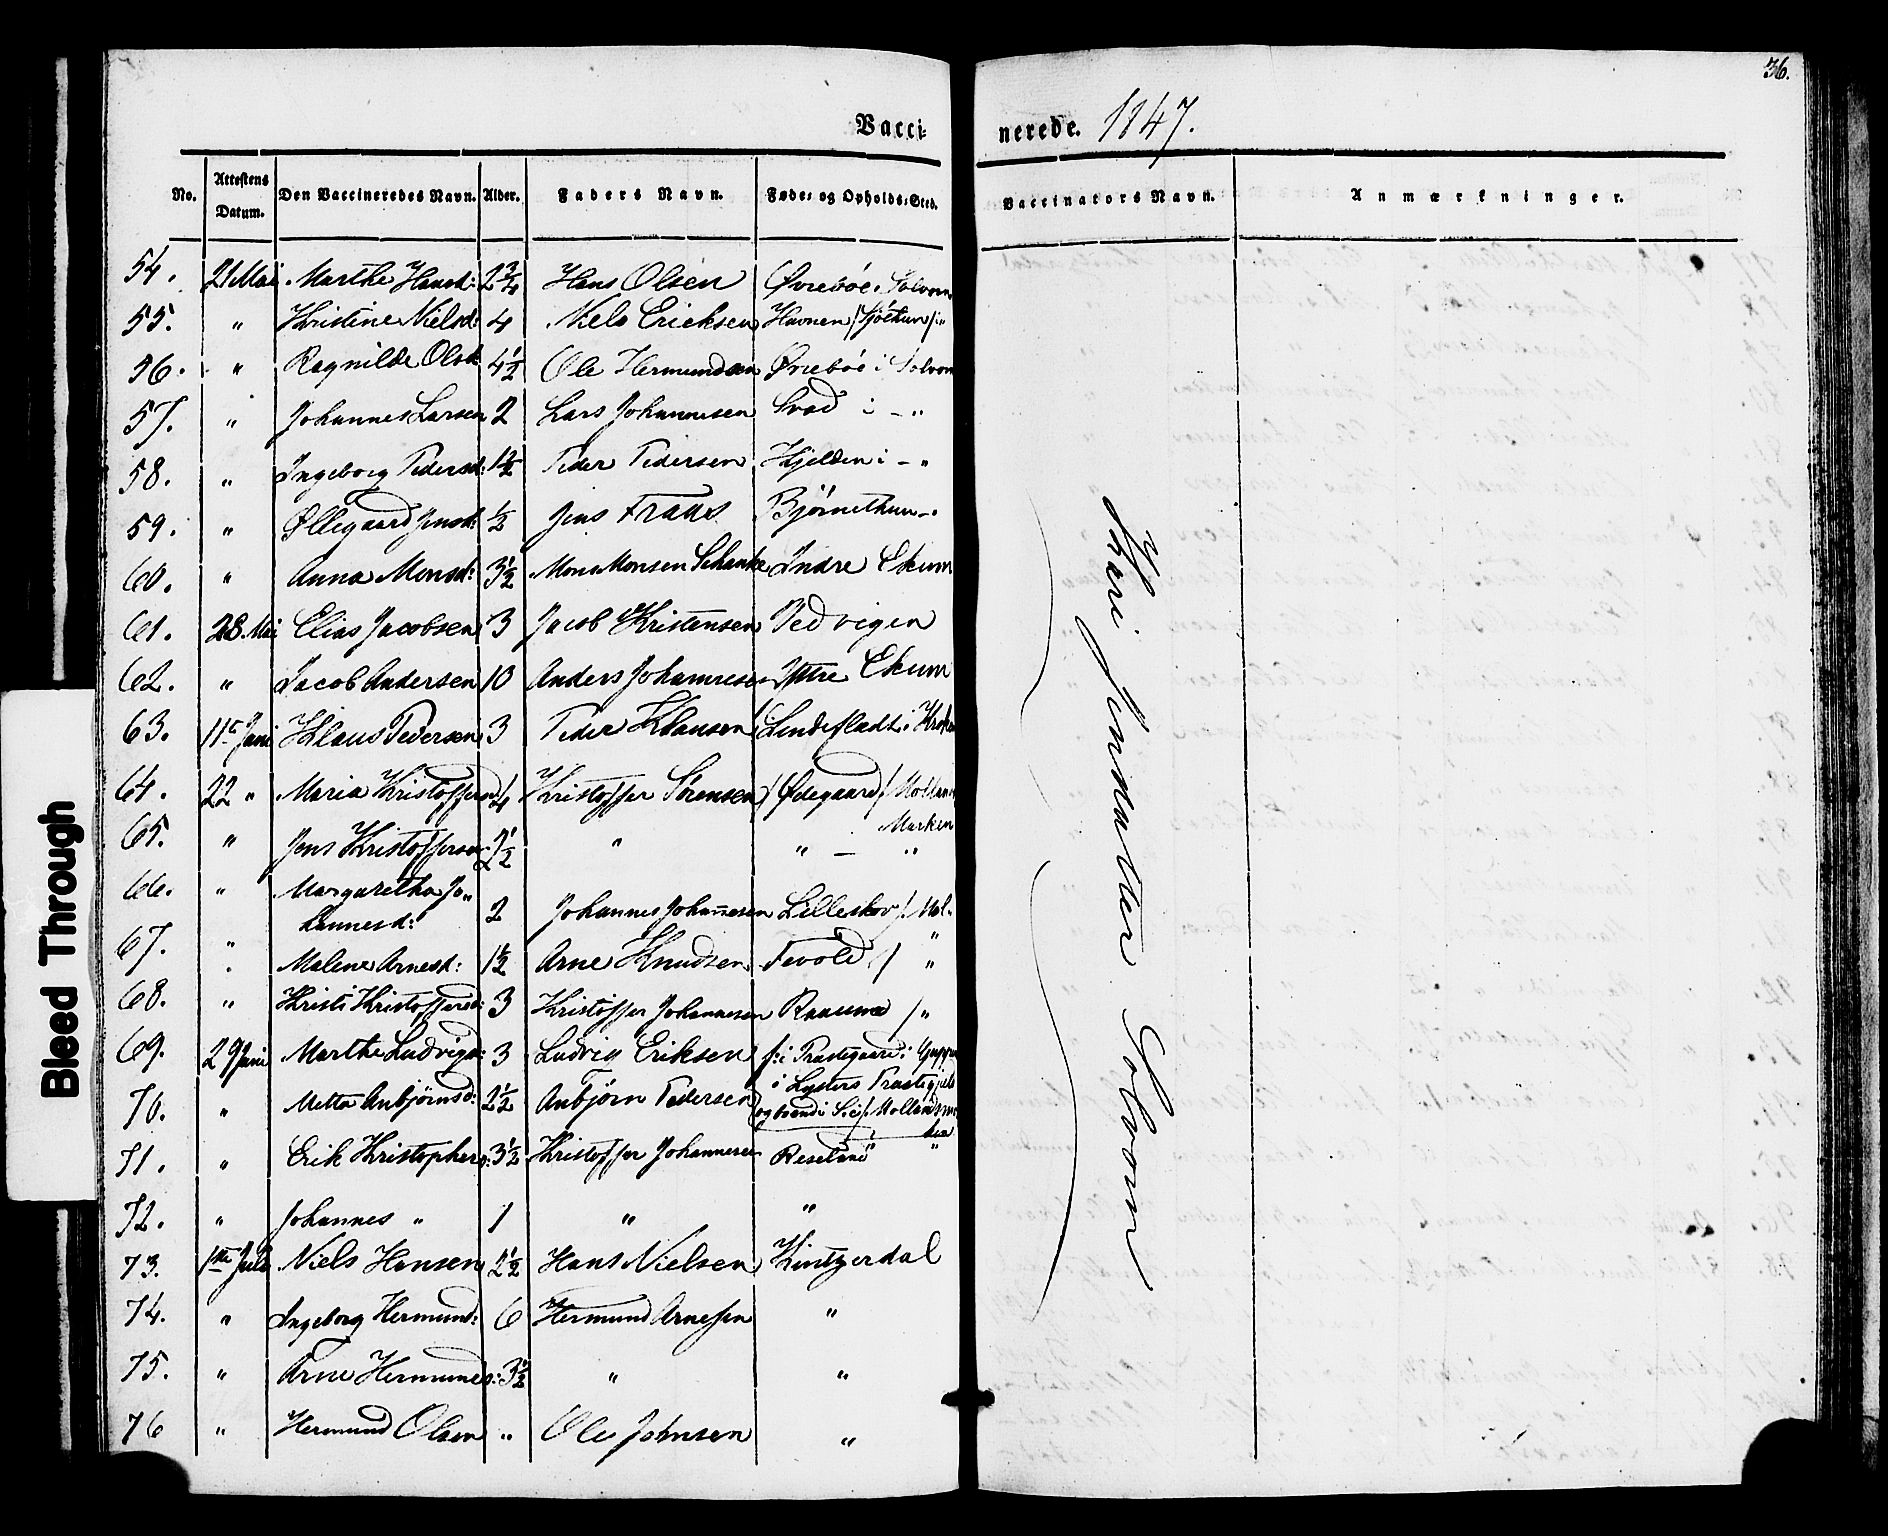 36.
Vaccinerede. 1847.
No. Attestens Datum. Den Vaccineredes Navn. Alder. Faders Navn. Føde- og Opholds-Sted. Vaccinators Navn. Anmærkninger.
54. 21 Mai Marthe Hansd: 2 3/4 Hans Olsen Øvrebøe i Solvorn
55. " Kristine Nielsd: 4 Niels Ericksen Havnen
56. " Ragnilde Olsd: 4 1/2 Ole Hermundsen Øvrebøe i Solvorn
57. " Johannes Larsen 2 Lars Johannesen i - "
58. " Ingeborg Pedersd: 1 1/2 Peder Pedersen Kjelden i - "
59. " Øllegaard Jensd: 1/2 Jens
60. " Anna Monsd: 3 1/2 Mons Monsen Schanke Indre Ekum
61. 28. Mai Elias Jacobsen 3 Jacob Kristensen Pedvigen
62. " Jacob Andersen 10 Anders Johannesen Yttre Ekum
63. 11te Juni Klaus Pedersen 3 Peder Klausen
64. 22 " Maria Kristoffersd: Kristoffer Sørensen Ødegaard
Marken
65. " Jens Kristoffersen " " — "
66. " Margaretha Jo-
hannesd: 2 Johannes Johannesen Lilleskov / Mol-
67. " Malene Arnesd: 1 1/2 Arne Knudsen / "
68. " Kristi Kristoffersd: 3 Kristoffer Johannesen / "
69. 29 Juni Marthe Ludvigsd: 3 Ludvig Eriksen
i Lysters Præstegjeld
70. " Metta Anbjørnsd: 2 1/2 Anbjørn Pedersen
71. " Erik Kristophers: 3 1/2 Kristoffer Johannesen "
72. " Johannes " 1 " "
73. 1ste Juli Niels Hansen 2 1/2 Hans Nielsen
74. " Ingeborg Hermund: 6 Hermund Arnesen "
75. " Arne Hermunds: 3 1/2 " "
76 " Hermund Olsen " Ole Johnsen "
Solvorn
Bleed Through